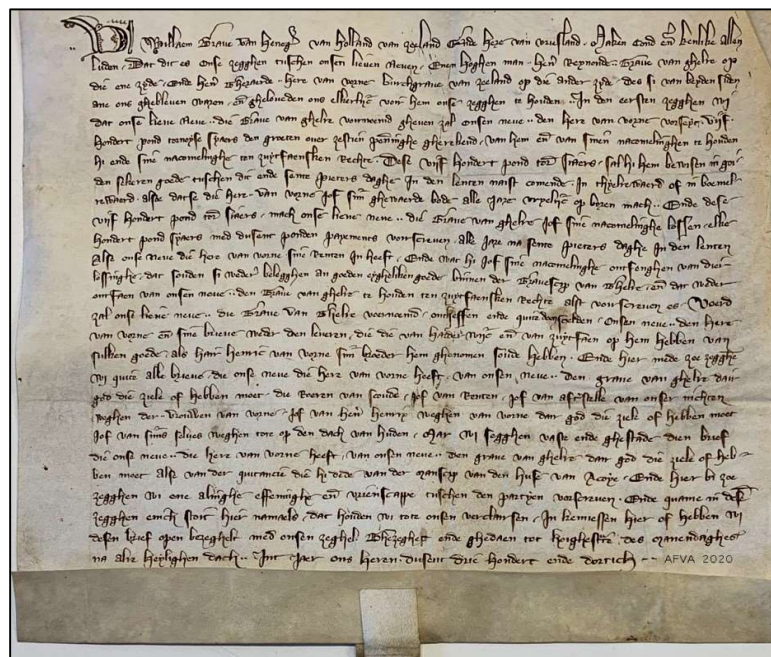 Wi Willaem Grave van Henegouwe van Holland van Zeeland Ende Here van Vriesland. Maken cond en kenlike allen
luden. Dat dit es onse zegghen tuschen onsen lieven neven. Enen hoghen man. hern Reynoude. Grave van Ghelre op
die ene zyde. Ende hern Gheraude. Here van Vorne burchgrave van Zeeland op die ander zyde. des si van beyden siden
ane ons ghebleven waren. en gheloveden ons elkerlic voir hem onse zegghen te houden. In den eersten zegghen wi
dat onse lieve neve. die Grave van Ghelre voirnoemd gheven zal onsen neve. den here van Vorne vorseyt. Vijf
hondert pond tornoyse sjaers den groten over zestien penninghe gherekend. van hem en van sinen nacomelinghen te houden
hi ende sine nacomelinghe ten zutfaenschen rechte. Dese vijf hondert pond tors siaers. sal hi hem bewisen in goi
den sekeren goede tuschen dit ende sente Pieters daghe in den lenten naist comende. In thyelreward of in boemel
reward. alse datse die here van Vorne jof sine ghewaerde bode alle jare vryelic op boren mach. Ende dese
vijf hondert pond tors siaers. mach onse lieve neve. die Grave van Ghelre jof sine nacomelinghe lossen. elke
hondert pond sjaers med dusent ponden payements voirscreven. alle jare na sente Pieters daghe in den lenten
Als onse neve die here van Vorne sine renten in heeft. Ende wat hi jof sine nacomelinghe ontfenghen van dier
lossinghe. dat souden si weder belegghen an goeden eyghelikengoede binnen der Graefscap van Ghelre. en dat weder
ontfaen van onsen neve. den Grave van Ghelre te houden ten zutfaenschen rechte alst voirscreven es. Voerd
zal onse lieve neve. die Grave van Ghelre voirnoemd. ontheffen ende quite doen scelden. Onsen neve. den here
van Vorne en sine brieve weder den leveren, die die van en van zutfaen op hem hebben van
sulken goede. als hair Henric van Vorne sijn broeder hem ghenomen soude hebben. Ende hier mede zoe zegghen
wi quite alle brieve. die onse neve die here van Vorne heeft. van onsen neve. den grave van Ghelre dair
god die ziele of hebben moet. die roeren van scoude. jof van renten. jof van afstelle van onser nichten
weghen der vrouwen van Vorne. jof van hern Henrix weghen van Vorne dair god die ziele of hebben moet
jof van sijns selves weghen tote op den dach van huden. Mar wi segghen vaste ende ghestade dien brief
die onse neve. die here van Vorne heeft. van onsen neve. den grave van Ghelre dair god die ziele of heb
ben moet alse van der quitancie die hi dede van der manscap van den huse van Acoye. Ende hier bi zoe
zegghen wi ene alinghe effeninghe en vrienscappe tuschen den partyen vorscreven. Ende quame in desen
zegghen enich stoit hier namaels. dat houden wi tote onsen verclaersen. In kennessen hier of hebben wi
desen brief open bezeghelt med onsen zeghel. Ghezeghet ende ghedaen tot des manendaghes
na alre heylighen dach. Int jaer ons heren. dusent drie hondert ende dortich
AFVA 2020